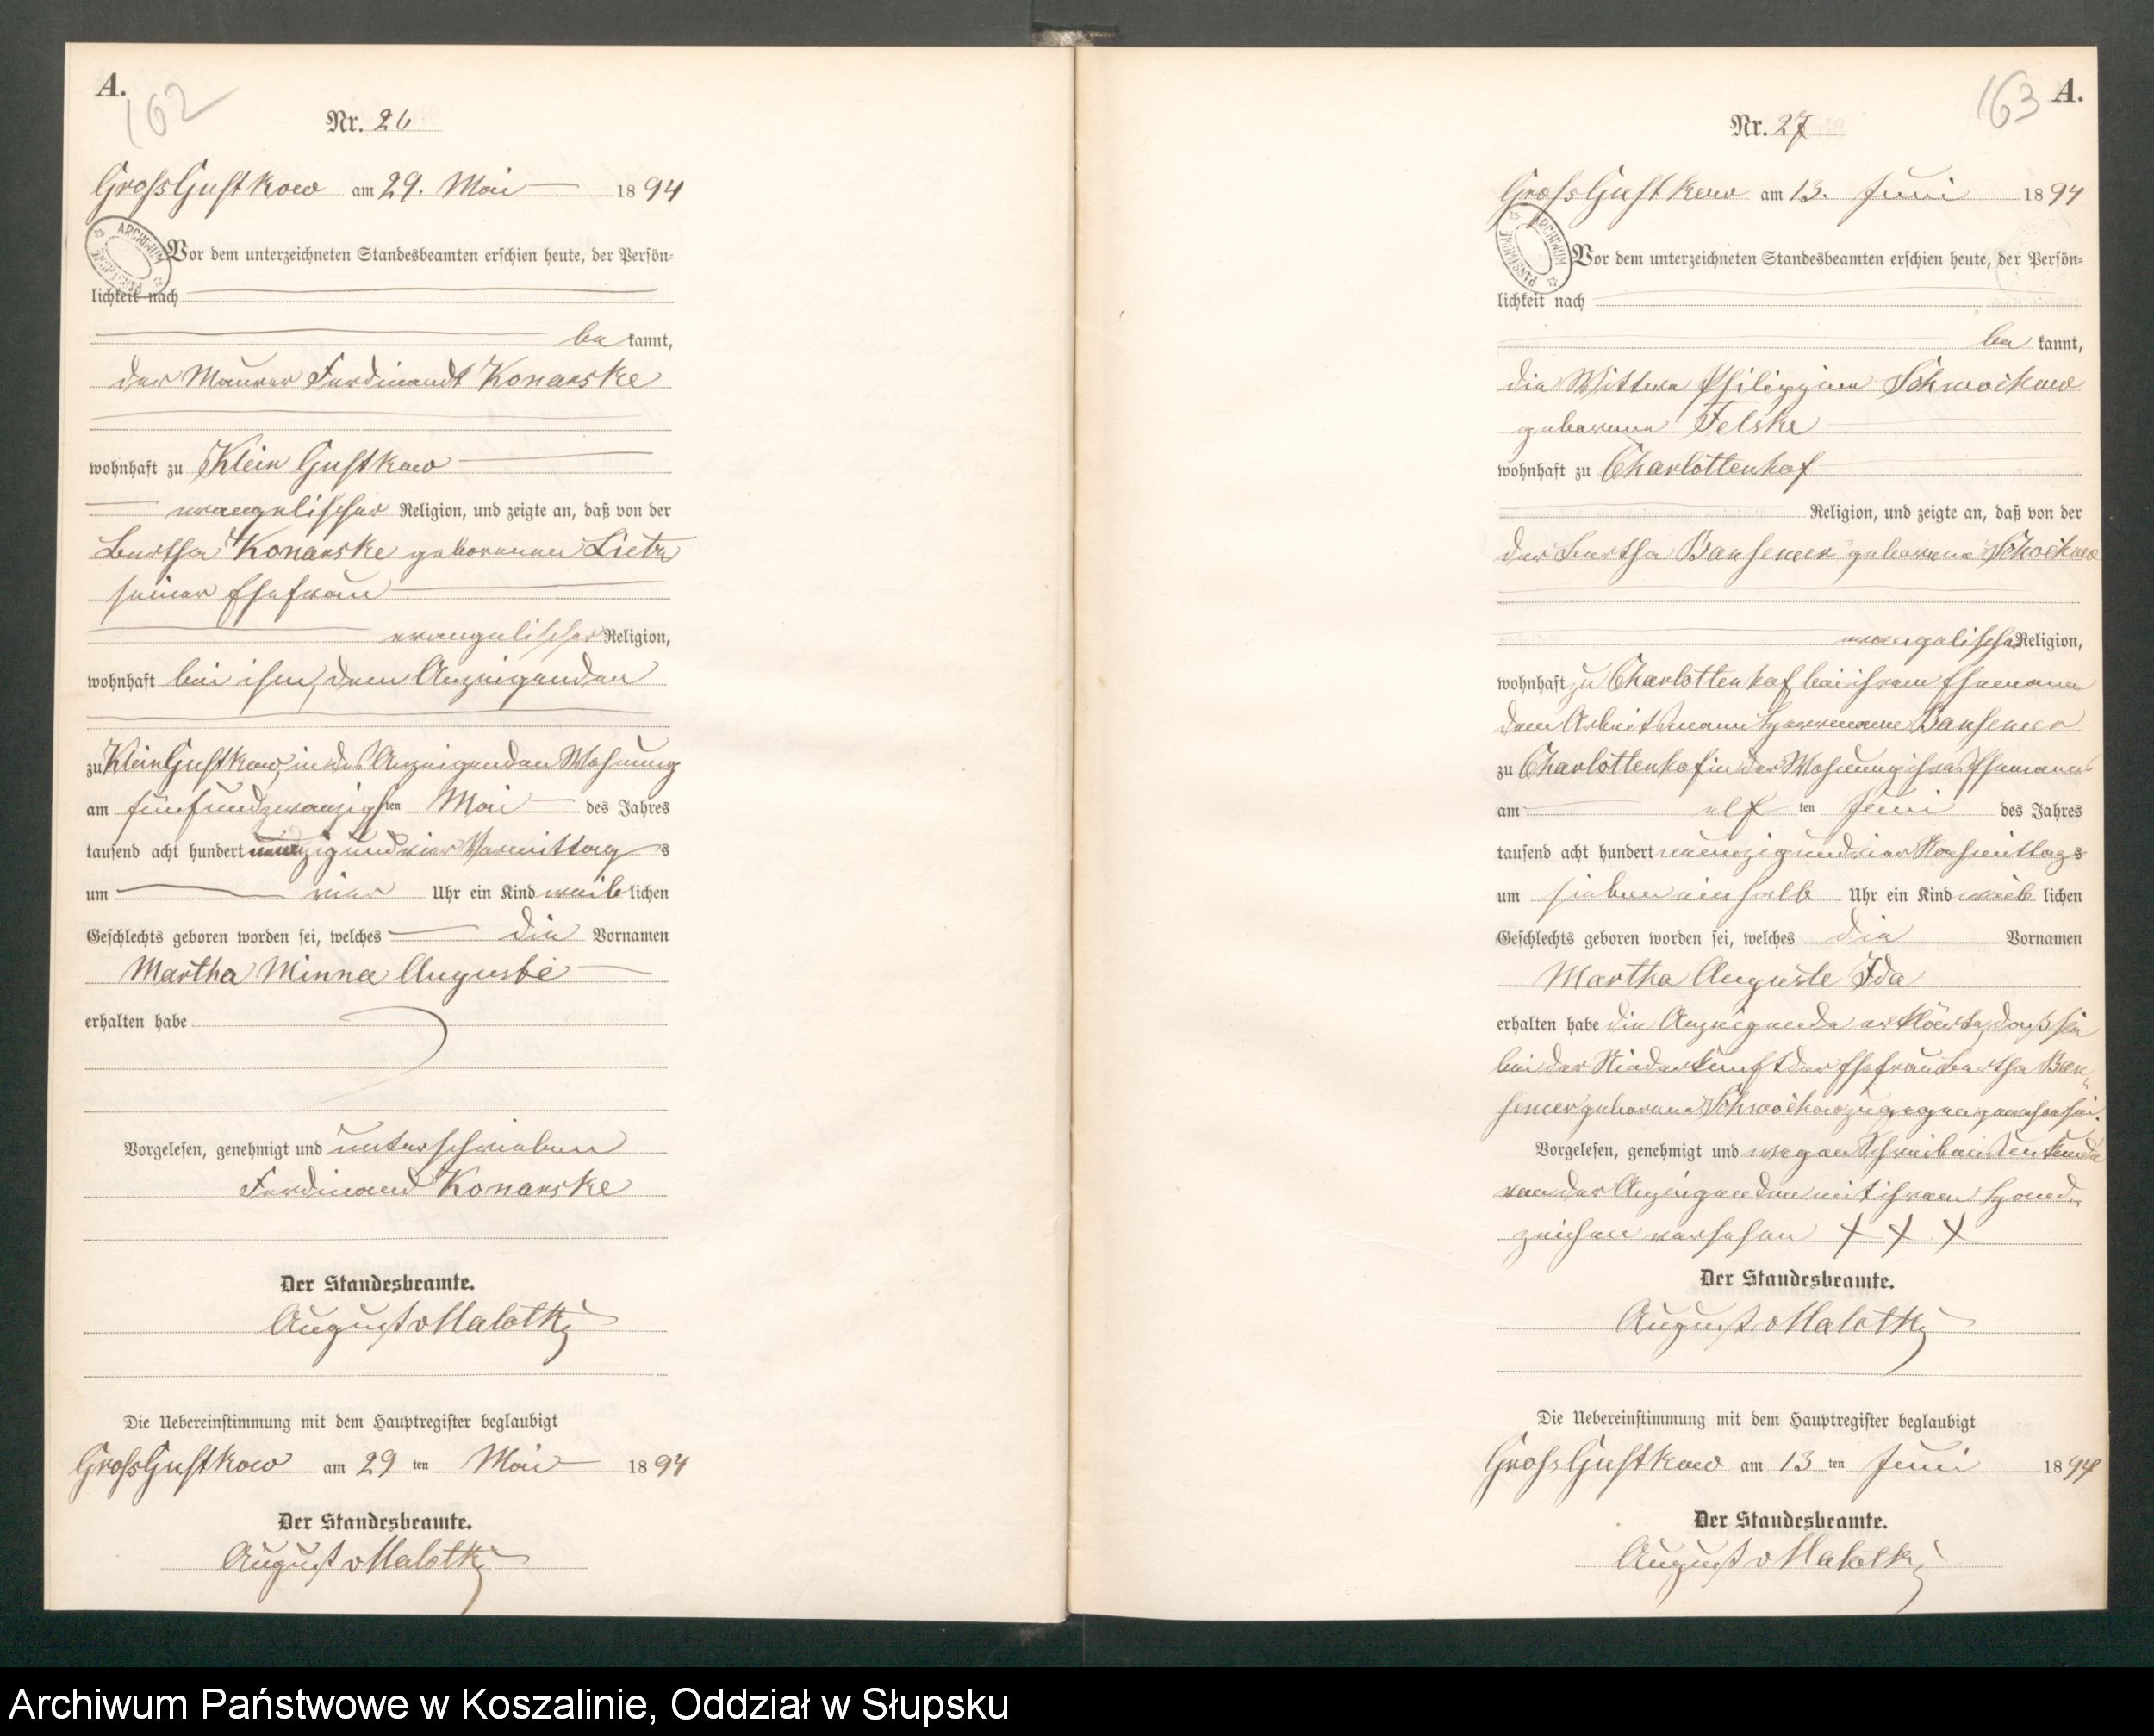 A.
162
Nr. 26
Gross Gustkow am 29. Mai 1894
Vor dem unterzeichneten Standesbeamten erschien heute, der Persön-
lichkeit nach
be kannt,
der Maurer Ferdinandt Konarske
wohnhaft zu Klein Gustkow
evangelischer Religion, und zeigte an, daß von der
Bertha Konarske geborenen Lietz
seiner Ehefrau
evangelischer Religion,
wohnhaft bei ihm, dem Anzeigenden
zu Klein Gustkow, in des Anzeigenden Wohnung
am fünfundzwanzigsten Mai des Jahres
tausend acht hundert neunzig und vier Vormittags
um vier Uhr ein Kind weiblichen
Geschlechts geboren worden sei, welches die Vornamen
Martha Minna Auguste
erhalten habe
Vorgelesen, genehmigt und unterschrieben
Ferdinand Konarske
Der Standesbeamte.
August v Malottki
Die Uebereinstimmung mit dem Hauptregister beglaubigt
Gross Gustkow am 29 ten Mai 1894
Der Standesbeamte.
August v Malottki
163
A.
Nr. 27
Gross Gustkow am 13. Juni 1894
Vor dem unterzeichneten Standesbeamten erschien heute, der Persön-
lichkeit nach
be kannt,
die Wittwe Philippine Schwochow
geborene Felske
wohnhaft zu Charlottenhof
Religion, und zeigte an, daß von der
der Bertha Bansemer geborene Schochow
evangelischer Religion,
wohnhaft zu Charlottenhof bei ihrem Ehemann
dem Arbeitsmann Herrmann Bansemer
zu Charlottenhof in der Wohnung ihres Ehemanns
am elf ten Juni des Jahres
tausend acht hundert neunzig und vier Nachmittags
um sieben ein halb Uhr ein Kind weib lichen
Geschlechts geboren worden sei, welches die Vornamen
Martha Auguste Ida
erhalten habe die Anzeigende erklärte, daß sie
bei der Niederkunft der Ehefrau Bertha Ban-
semer geborene Schwochow zugegen gewesen sei.
Vorgelesen, genehmigt und wegen Schreibensunkunde
von der Anzeigenden mit ihrem Hand-
zeichen versehen + + +
Der Standesbeamte.
August v Malottki
Die Uebereinstimmung mit dem Hauptregister beglaubigt
Gross Gustkow am 13 ten Juni 1894
Der Standesbeamte.
August v Malottki
ARCHIWUM PAŃSTWOWE
ARCHIWUM PAŃSTWOWE
Archiwum Państwowe w Koszalinie, Oddział w Słupsku